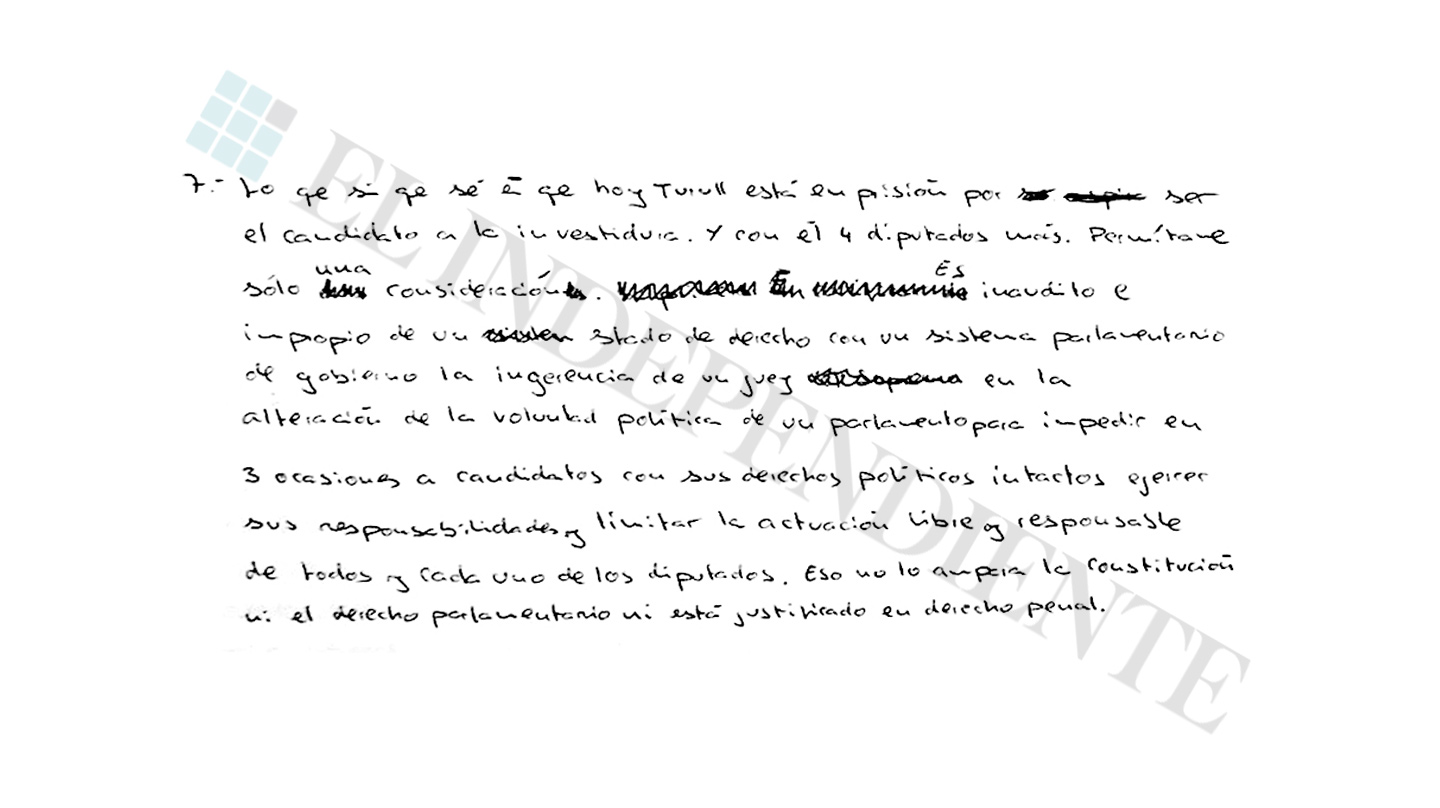 EL INDEPENDIENTE
7.- Lo qe sí qe sé é qe hoy Turull está en prisión por ser
el candidato a la investidura. Y con él 4 diputados más. Permítame
sólo una consideración. Es inaudito e
impropio de un stado de derecho con un sistema parlamentario
de gobierno la ingerencia de un juez en la
alteración de la voluntad política de un parlamento para impedir en
3 ocasiones a candidatos con sus derechos políticos intactos ejercer
sus responsabilidades y limitar la actuación libre y responsable
de todos y cada uno de los diputados. Eso no lo ampara la Constitución
ni el derecho parlamentario ni está justificado en derecho penal.